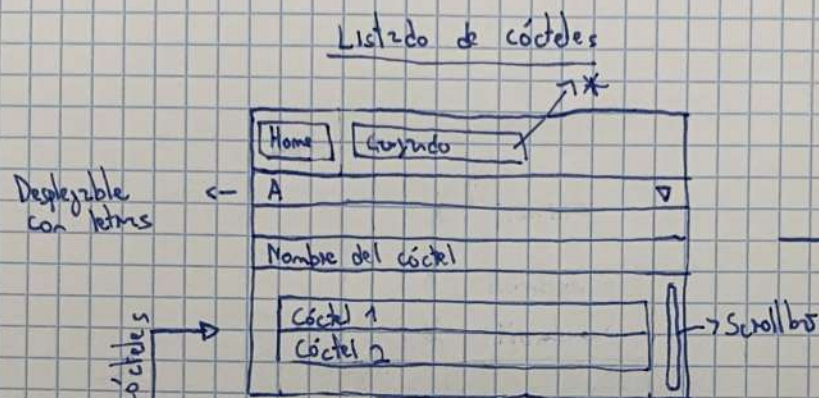 Listado de cócteles
*
Home
A
Desplegable
con letras
Nombre del cóctel
Cóctel 1
Cóctel 2
Scrollbar